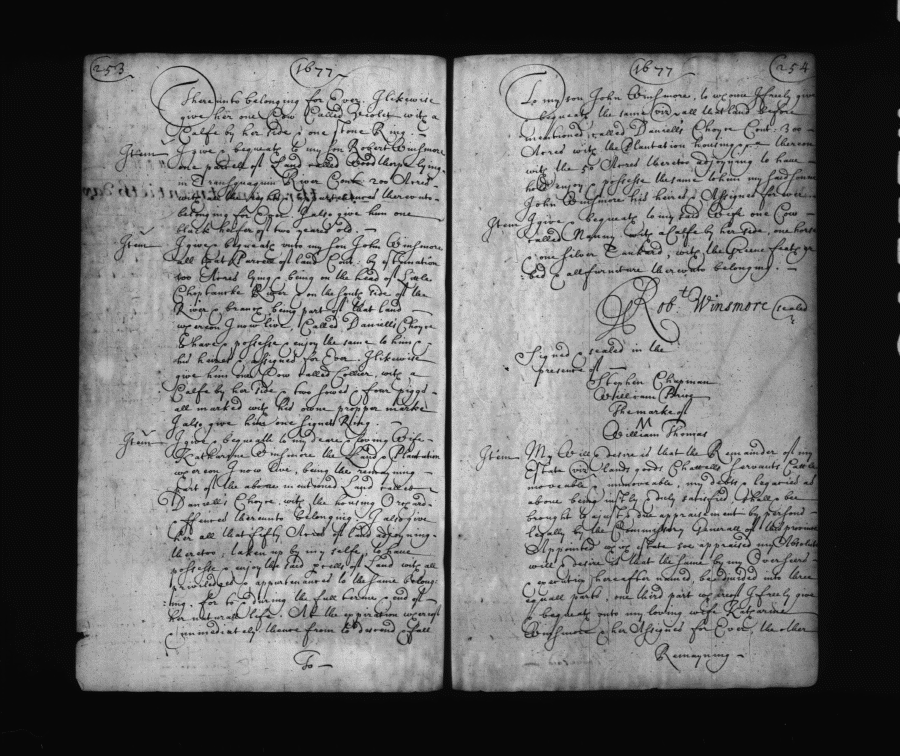 253
1677
Thereunto belonging for Ever. I likewise
give her one Cow Called Violet with a
Calfe by her side & one stone Ring.
Item I give & bequeath to my son Robert Winsmore
one parcell of Land called lying
in Transquaquin River Cont. 200 Acres
with all the rights & appurtenances thereunto
belonging for Ever. I also give him one
black heifer of two yeares old.
Item I give & bequeath unto my son John Winsmore
all that Parcell of land Cont. by estimation
300 Acres lying & being on the head of Little
Choptancke River & on the South side of the
River & branch being part of that land
whereon I now live, Called Daniells Choyce
to have & possesse & enjoy the same to him &
his heires & assignes for Ever. I likewise
give him one Cow called Collier, with a
Calfe by her side & two sowes & four piggs
all marked with his owne propper marke
I also give him one signet Ring.
Item I give & bequeath to my deare & loving Wife
Katharine Winsmore the Land & Plantation
whereon I now live, being the remaining
Part of the above mentioned Land called
Daniells Choyce, with the housing Orchard
& fences thereunto belonging I also give
her all that fifty Acres of land adjoyning
thereto, taken up by my self, to have
possesse & enjoy the said p'cells of Land with all
priviledges & appurtenances to the same belong
ing, for & during the full terme & end of
her naturall life. At the expiration whereof
& immediately thence from to descend & fall
To
1677
254
To my son John Winsmore, to whome I freely give
& bequeath the same viz all that land before
mentioned called Daniells Choyce Cont. 300
Acres with the Plantation housing &c thereon
with the 50 Acres thereto adjoyning to have
hold enjoy & possesse the same to him my said son
John Winsmore his heires & Assignes for ever
Item I give & bequeath to my said Wife one Cow
called Nanny with a Calfe by her side, one horse
& one Silver Tankard, with the Greene
bed & all furniture thereunto belonging.
Robt. Winsmore (sealed
Signed & sealed in the
presence of
Stephen Chapman
William
The marke of
M
William Thomas
Item My Will & desire is that the Remainder of my
Estate viz lands goods Chattells Servants Cattle
moveable & immoveable, my debts & legacies as
above being justly & duly satisfied, shall be
brought to a just & due appraisement by persons
legally by the Commissary Generall of this province
Appointed wch estate soe appraised my Absolute
will & desire is that the same by my Overseers
& executrix hereafter named, be devided into three
equall parts, one third part whereof I freely give
& bequeath unto my loving wife Katharine
Winsmore & her Assignes for Ever, the other
Remayning